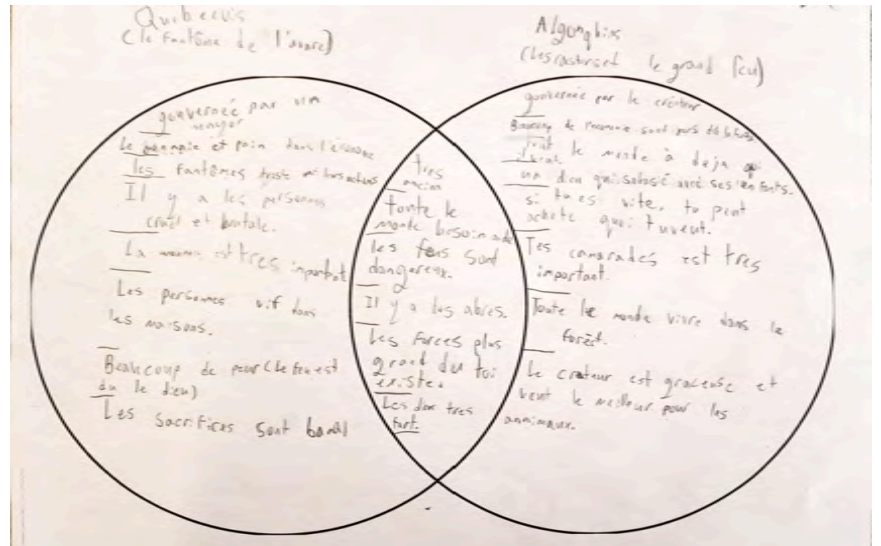 Quibecuis
(le fantôme de l'avare)
Algonqbins
(les castors et le grand feu)
gouvernée par un
mayor
Le monnaie et pain dans l'économe
les fantômes triste
Il y a les personnes
cruel et brutale.
La est tres important
Les personnes vif dans
les maisons.
Beaucoup de peur (le feu est
du le dieu)
Les Sacrifices sont
tres
ancien
toute le
monde besoin
les feus sont
dangereux.
Il y a les abres.
Les forces plus
grand du toi
existe.
Les deux tres
fort.
gouvernée par le créteur
Beaucoup de sont
tout le monde à deja
un dieu qui ses enfants.
si tu es vite, tu peut
achete quoi tuveut.
Tes camarades est tres
important.
Toute le monde vivre dans le
forêst.
Le creteur est graceuse et
veut le meilleur pour les
annimaux.